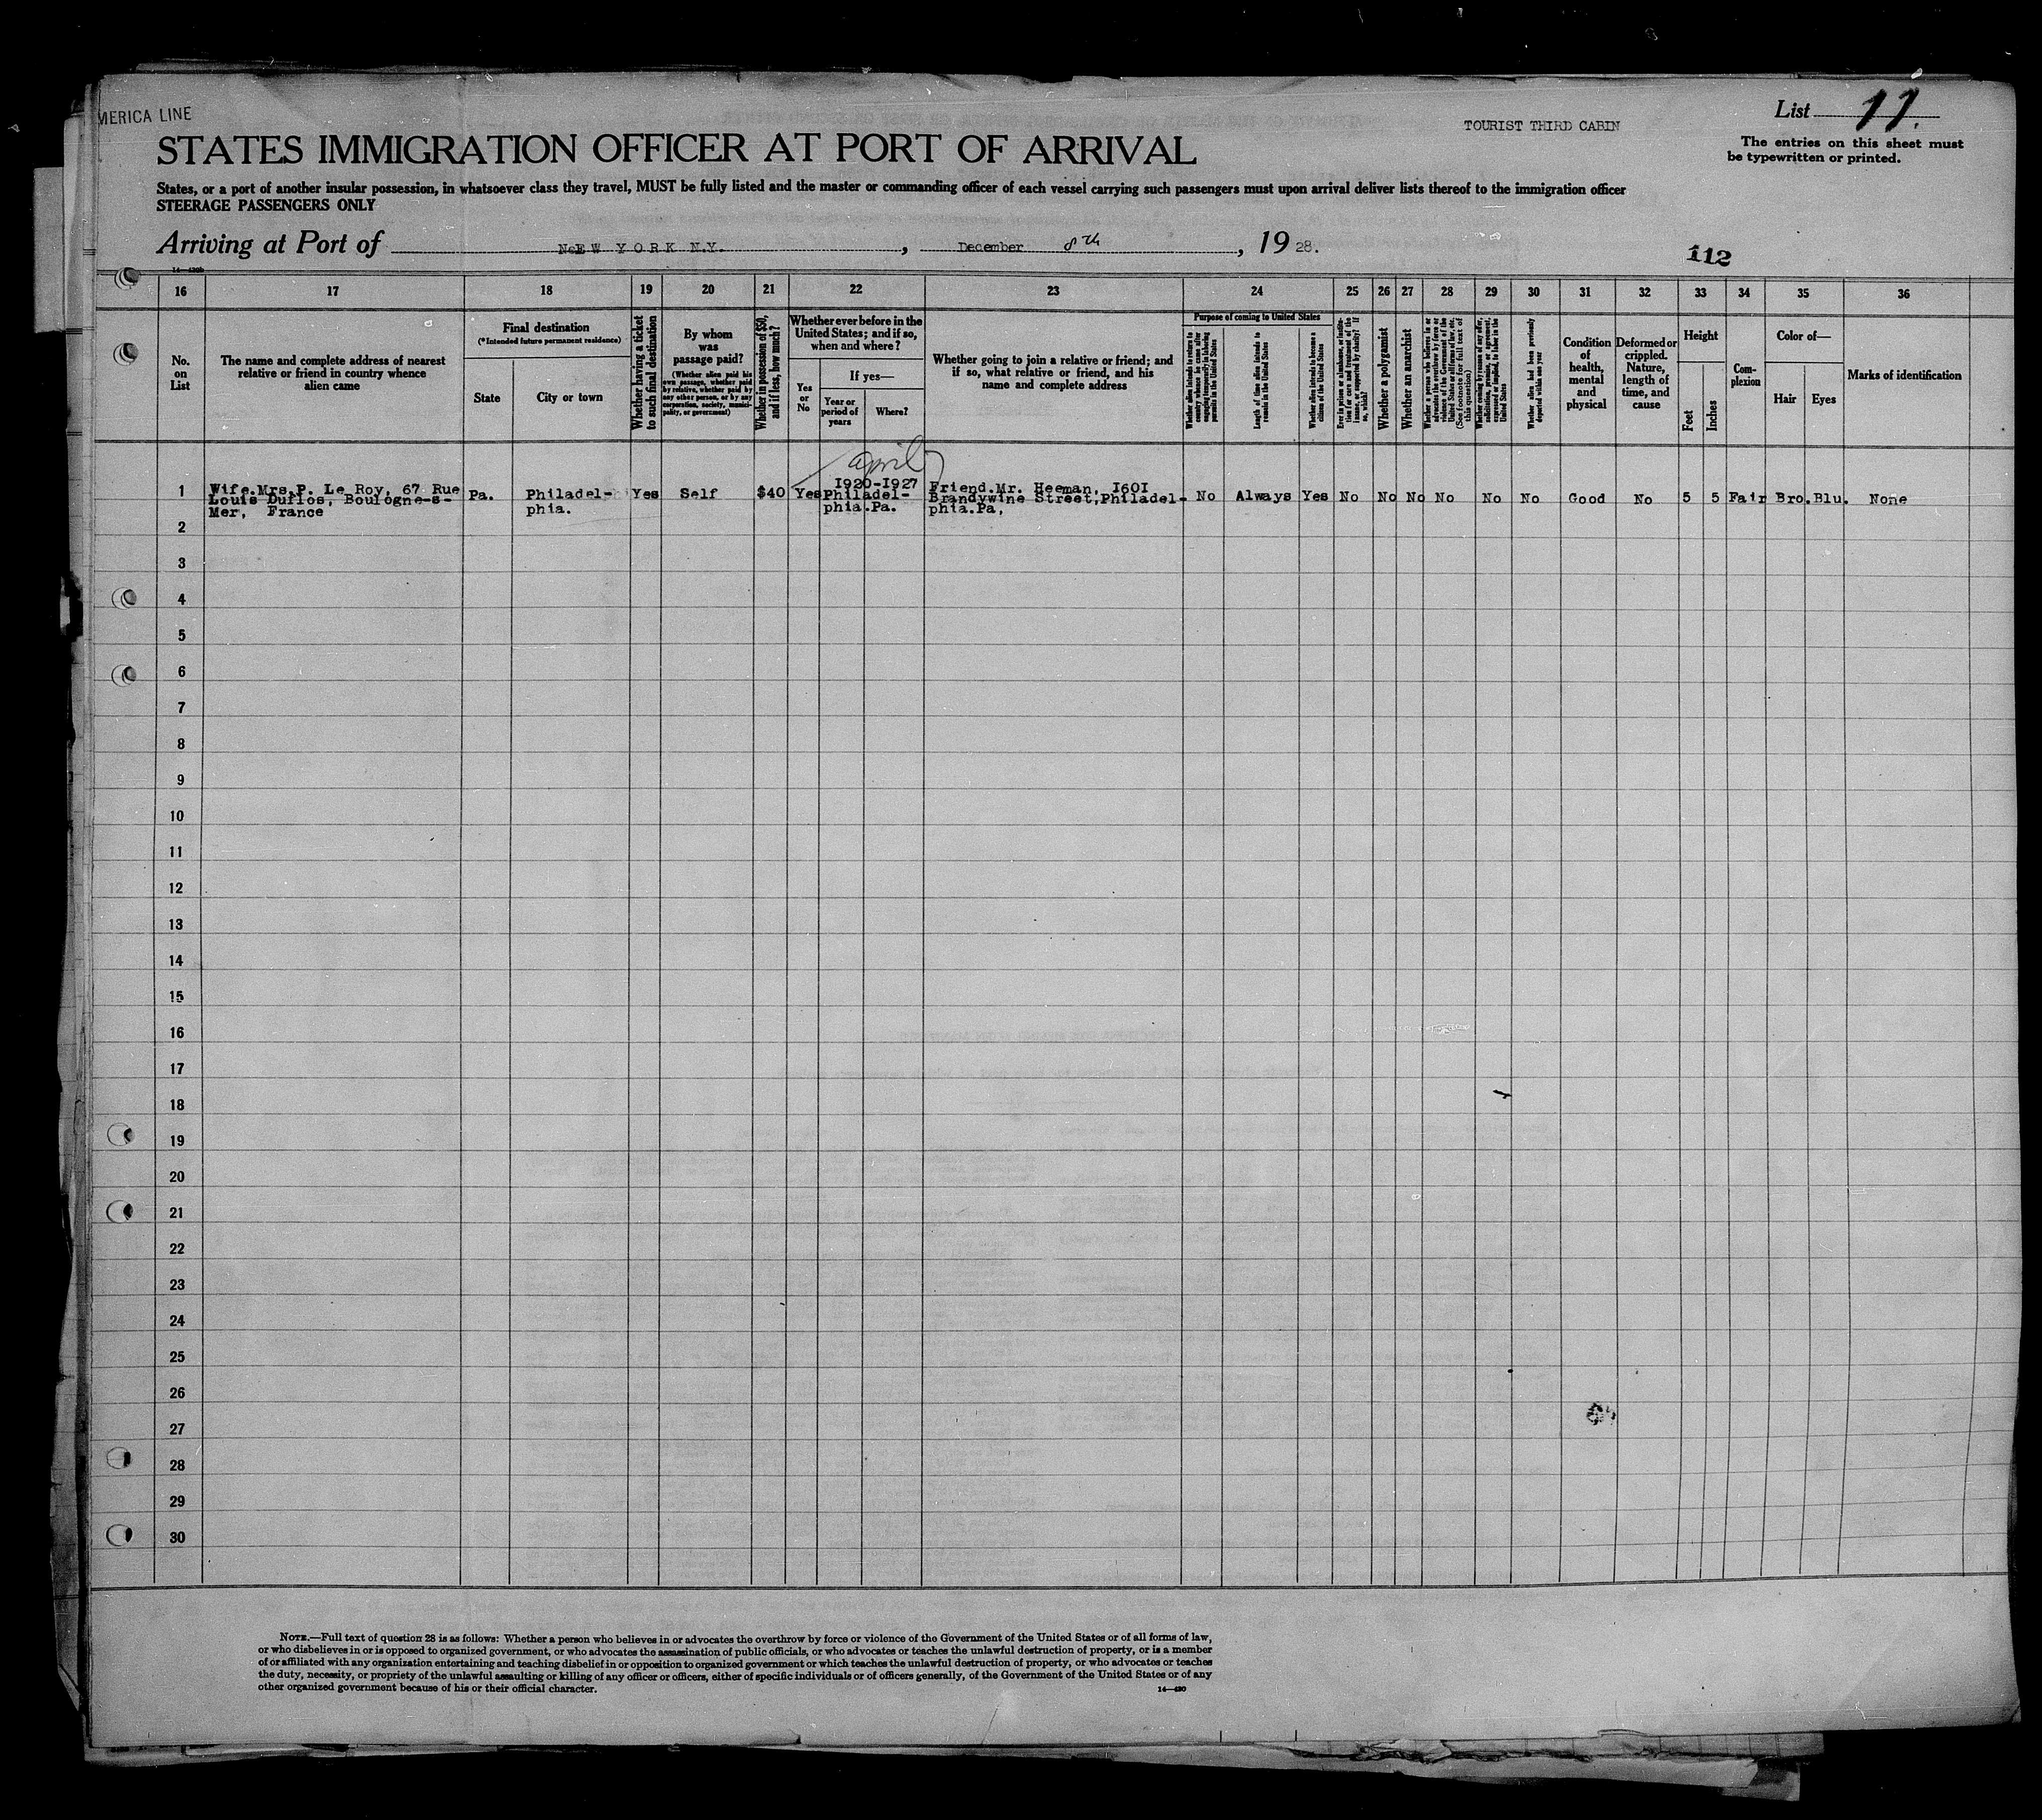 MERICA LINE
TOURIST THIRD CABIN
List 11.
STATES IMMIGRATION OFFICER AT PORT OF ARRIVAL
The entries on this sheet must
be typewritten or printed.
States, or a port of another insular possession, in whatsoever class they travel, MUST be fully listed and the master or commanding officer of each vessel carrying such passengers must upon arrival deliver lists thereof to the immigration officer
STEERAGE PASSENGERS ONLY
Arriving at Port of NeE W Y O R K N.Y. , December 8th , 19 28.
112
16 17 18 19 20 21 22 23 24 25 26 27 28 29 30 31 32 33 34 35 36
No.
on
List
The name and complete address of nearest
relative or friend in country whence
alien came
Final destination
(*Intended future permanent residence)
State
City or town
Whether having a ticket
to such final destination
By whom
was
passage paid?
(Whether alien paid his
own passage, whether paid
by relative, whether paid by
any other person, or by any
corporation, society, munici-
pality, or government)
Whether in possession of $50,
and if less, how much?
Whether ever before in the
United States; and if so,
when and where?
Yes
or
No
If yes—
Year or
period of
years
Where?
Whether going to join a relative or friend; and
if so, what relative or friend, and his
name and complete address
Purpose of coming to United States
Whether alien intends to return to
country whence he came after
engaging temporarily in laboring
pursuits in the United States
Length of time alien intends to
remain in the United States
Whether alien intends to become a
citizen of the United States
Ever in prison or almshouse, or institu-
tion for care and treatment of the
insane, or supported by charity? If
so, which?
Whether a polygamist
Whether an anarchist
Whether a person who believes in or
advocates the overthrow by force or
violence of the Government of the
United States or all forms of law, etc.
(See footnote for full text of
this question)
Whether coming by reason of any offer,
solicitation, promise, or agreement,
expressed or implied, to labor in the
United States
Whether alien had been previously
deported within one year
Condition
of
health,
mental
and
physical
Deformed or
crippled.
Nature,
length of
time, and
cause
Height
Feet
Inches
Com-
plexion
Color of—
Hair
Eyes
Marks of identification
april
1 Wife.Mrs.P. Le Roy, 67 Rue
Louis Duflos, Boulogne-s-
Mer, France
Pa.
Philadel-
phia.
Yes
Self
$40
Yes
1920-1927
Philadel-
phia.Pa.
Friend.Mr. Heeman, I60I
Brandywine Street,Philadel-
phia.Pa,
No Always Yes No No No No No No Good No 5 5 Fair Bro. Blu. None
2
3
4
5
6
7
8
9
10
11
12
13
14
15
16
17
18
19
20
21
22
23
24
25
26
27
28
29
30
NOTE.—Full text of question 28 is as follows: Whether a person who believes in or advocates the overthrow by force or violence of the Government of the United States or of all forms of law,
or who disbelieves in or is opposed to organized government, or who advocates the assassination of public officials, or who advocates or teaches the unlawful destruction of property, or is a member
of or affiliated with any organization entertaining and teaching disbelief in or opposition to organized government or which teaches the unlawful destruction of property, or who advocates or teaches
the duty, necessity, or propriety of the unlawful assaulting or killing of any officer or officers, either of specific individuals or of officers generally, of the Government of the United States or of any
other organized government because of his or their official character.
14—430